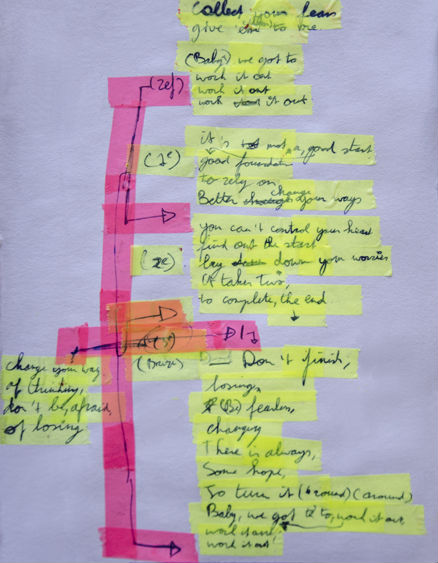 Collect your fears
give them to me
(Baby) we got to
work it out
work it out
work it out
(ref)
it is not a good start
good foundation
to rely on
Better change your ways
(1e)
you can't control your head
find out the start
lay down your worries
(2e)
It takes two,
to complete, the end
change your way
of thinking,
don't be afraid
of losing
Don't finish,
losing,
(Be) fearless,
changing
There is always,
Some hope,
To turn it (around) (around)
Baby, we got to, work it out
work it out,
work it out